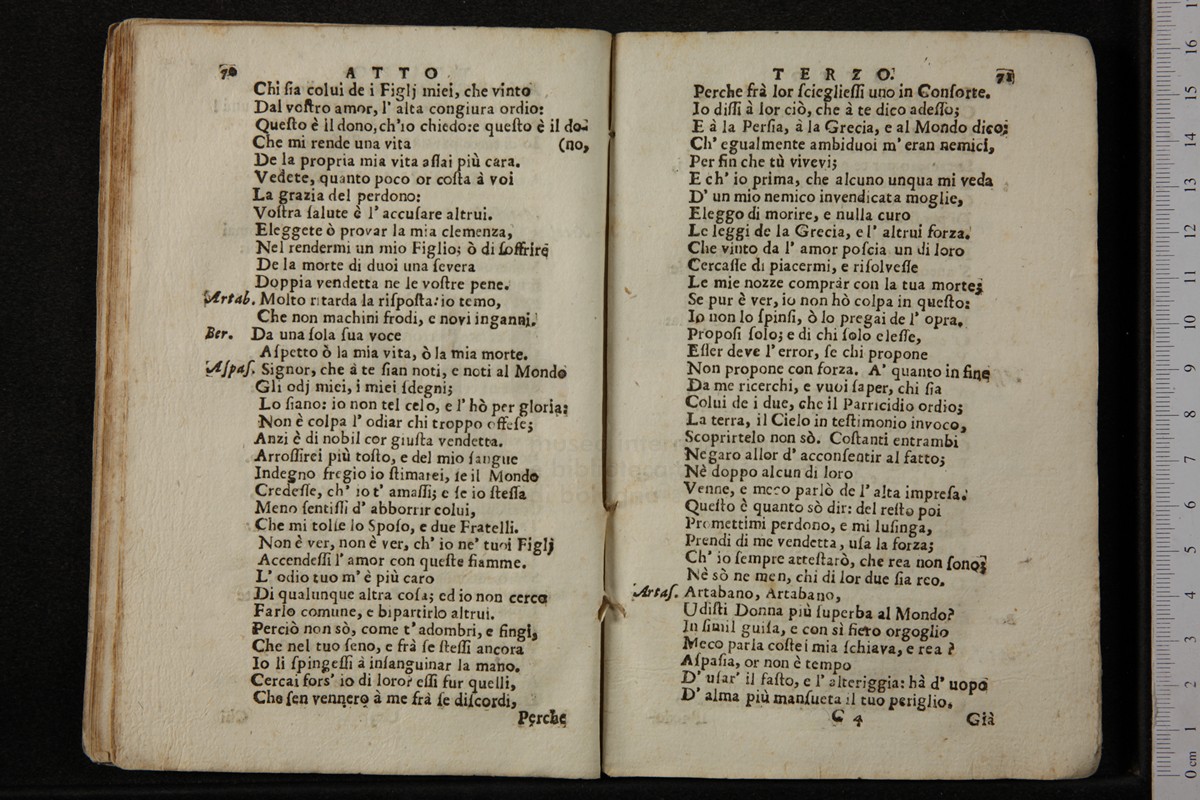 70 ATTO
Chi ſia colui de i Figlj miei, che vinto
Dal voſtro amor, l' alta congiura ordio:
Queſto è il dono, ch'io chiedo: e queſto è il do-
Che mi rende una vita (no,
De la propria mia vita aſſai più cara.
Vedete, quanto poco or coſta à voi
La grazia del perdono:
Voſtra ſalute è l' accuſare altrui.
Eleggete ò provar la mia clemenza,
Nel rendermi un mio Figlio; ò di ſoffrire
De la morte di duoi una ſevera
Doppia vendetta ne le voſtre pene.
Artab. Molto ritarda la riſpoſta: io temo,
Che non machini frodi, e novi inganni.
Ber. Da una ſola ſua voce
Aſpetto ò la mia vita, ò la mia morte.
Aſpaſ. Signor, che à te ſian noti, e noti al Mondo
Gli odj miei, i miei ſdegni;
Lo ſiano: io non tel celo, e l' hò per gloria:
Non è colpa l' odiar chi troppo offeſe;
Anzi è di nobil cor giuſta vendetta.
Arroſſirei più toſto, e del mio ſangue
Indegno fregio io ſtimarei, ſe il Mondo
Credeſſe, ch' io t' amaſſi; e ſe io ſteſſa
Meno ſentiſſi d' abborrir colui,
Che mi tolſe lo Spoſo, e due Fratelli.
Non è ver, non è ver, ch' io ne' tuoi Figlj
Accendeſſi l' amor con queſte fiamme.
L' odio tuo m' è più caro
Di qualunque altra coſa; ed io non cerco
Farlo comune, e bipartirlo altrui.
Perciò non sò, come t' adombri, e fingi,
Che nel tuo ſeno, e frà ſe ſteſſi ancora
Io li ſpingeſſi à inſanguinar la mano.
Cercai fors' io di loro? eſſi fur quelli,
Che ſen vennero à me frà ſe diſcordi,
Perche
TERZO. 71
Perche frà lor ſcieglieſſi uno in Conſorte.
Io diſſi à lor ciò, che à te dico adeſſo;
E à la Perſia, à la Grecia, e al Mondo dico;
Ch' egualmente ambiduoi m' eran nemici,
Per fin che tù vivevi;
E ch' io prima, che alcuno unqua mi veda
D' un mio nemico invendicata moglie,
Eleggo di morire, e nulla curo
Le leggi de la Grecia, e l' altrui forza.
Che vinto da l' amor poſcia un di loro
Cercaſſe di piacermi, e riſolveſſe
Le mie nozze comprar con la tua morte;
Se pur è ver, io non hò colpa in queſto:
Io non lo ſpinſi, ò lo pregai de l' opra.
Propoſi ſolo; e di chi ſolo eleſſe,
Eſſer deve l' error, ſe chi propone
Non propone con forza. A' quanto in fine
Da me ricerchi, e vuoi ſaper, chi ſia
Colui de i due, che il Parricidio ordio;
La terra, il Cielo in teſtimonio invoco,
Scoprirtelo non sò. Coſtanti entrambi
Negaro allor d' acconſentir al fatto;
Nè doppo alcun di loro
Venne, e meco parlò de l' alta impreſa.
Queſto è quanto sò dir: del reſto poi
Promettimi perdono, e mi luſinga,
Prendi di me vendetta, uſa la forza;
Ch' io ſempre atteſtarò, che rea non ſono;
Nè sò ne men, chi di lor due ſia reo.
Artaſ. Artabano, Artabano,
Udiſti Donna più ſuperba al Mondo?
In ſimil guiſa, e con sì fiero orgoglio
Meco parla coſtei mia ſchiava, e rea?
Aſpaſia, or non è tempo
D' uſar' il faſto, e l' alteriggia: hà d' uopo
D' alma più manſueta il tuo periglio.
C 4 Già